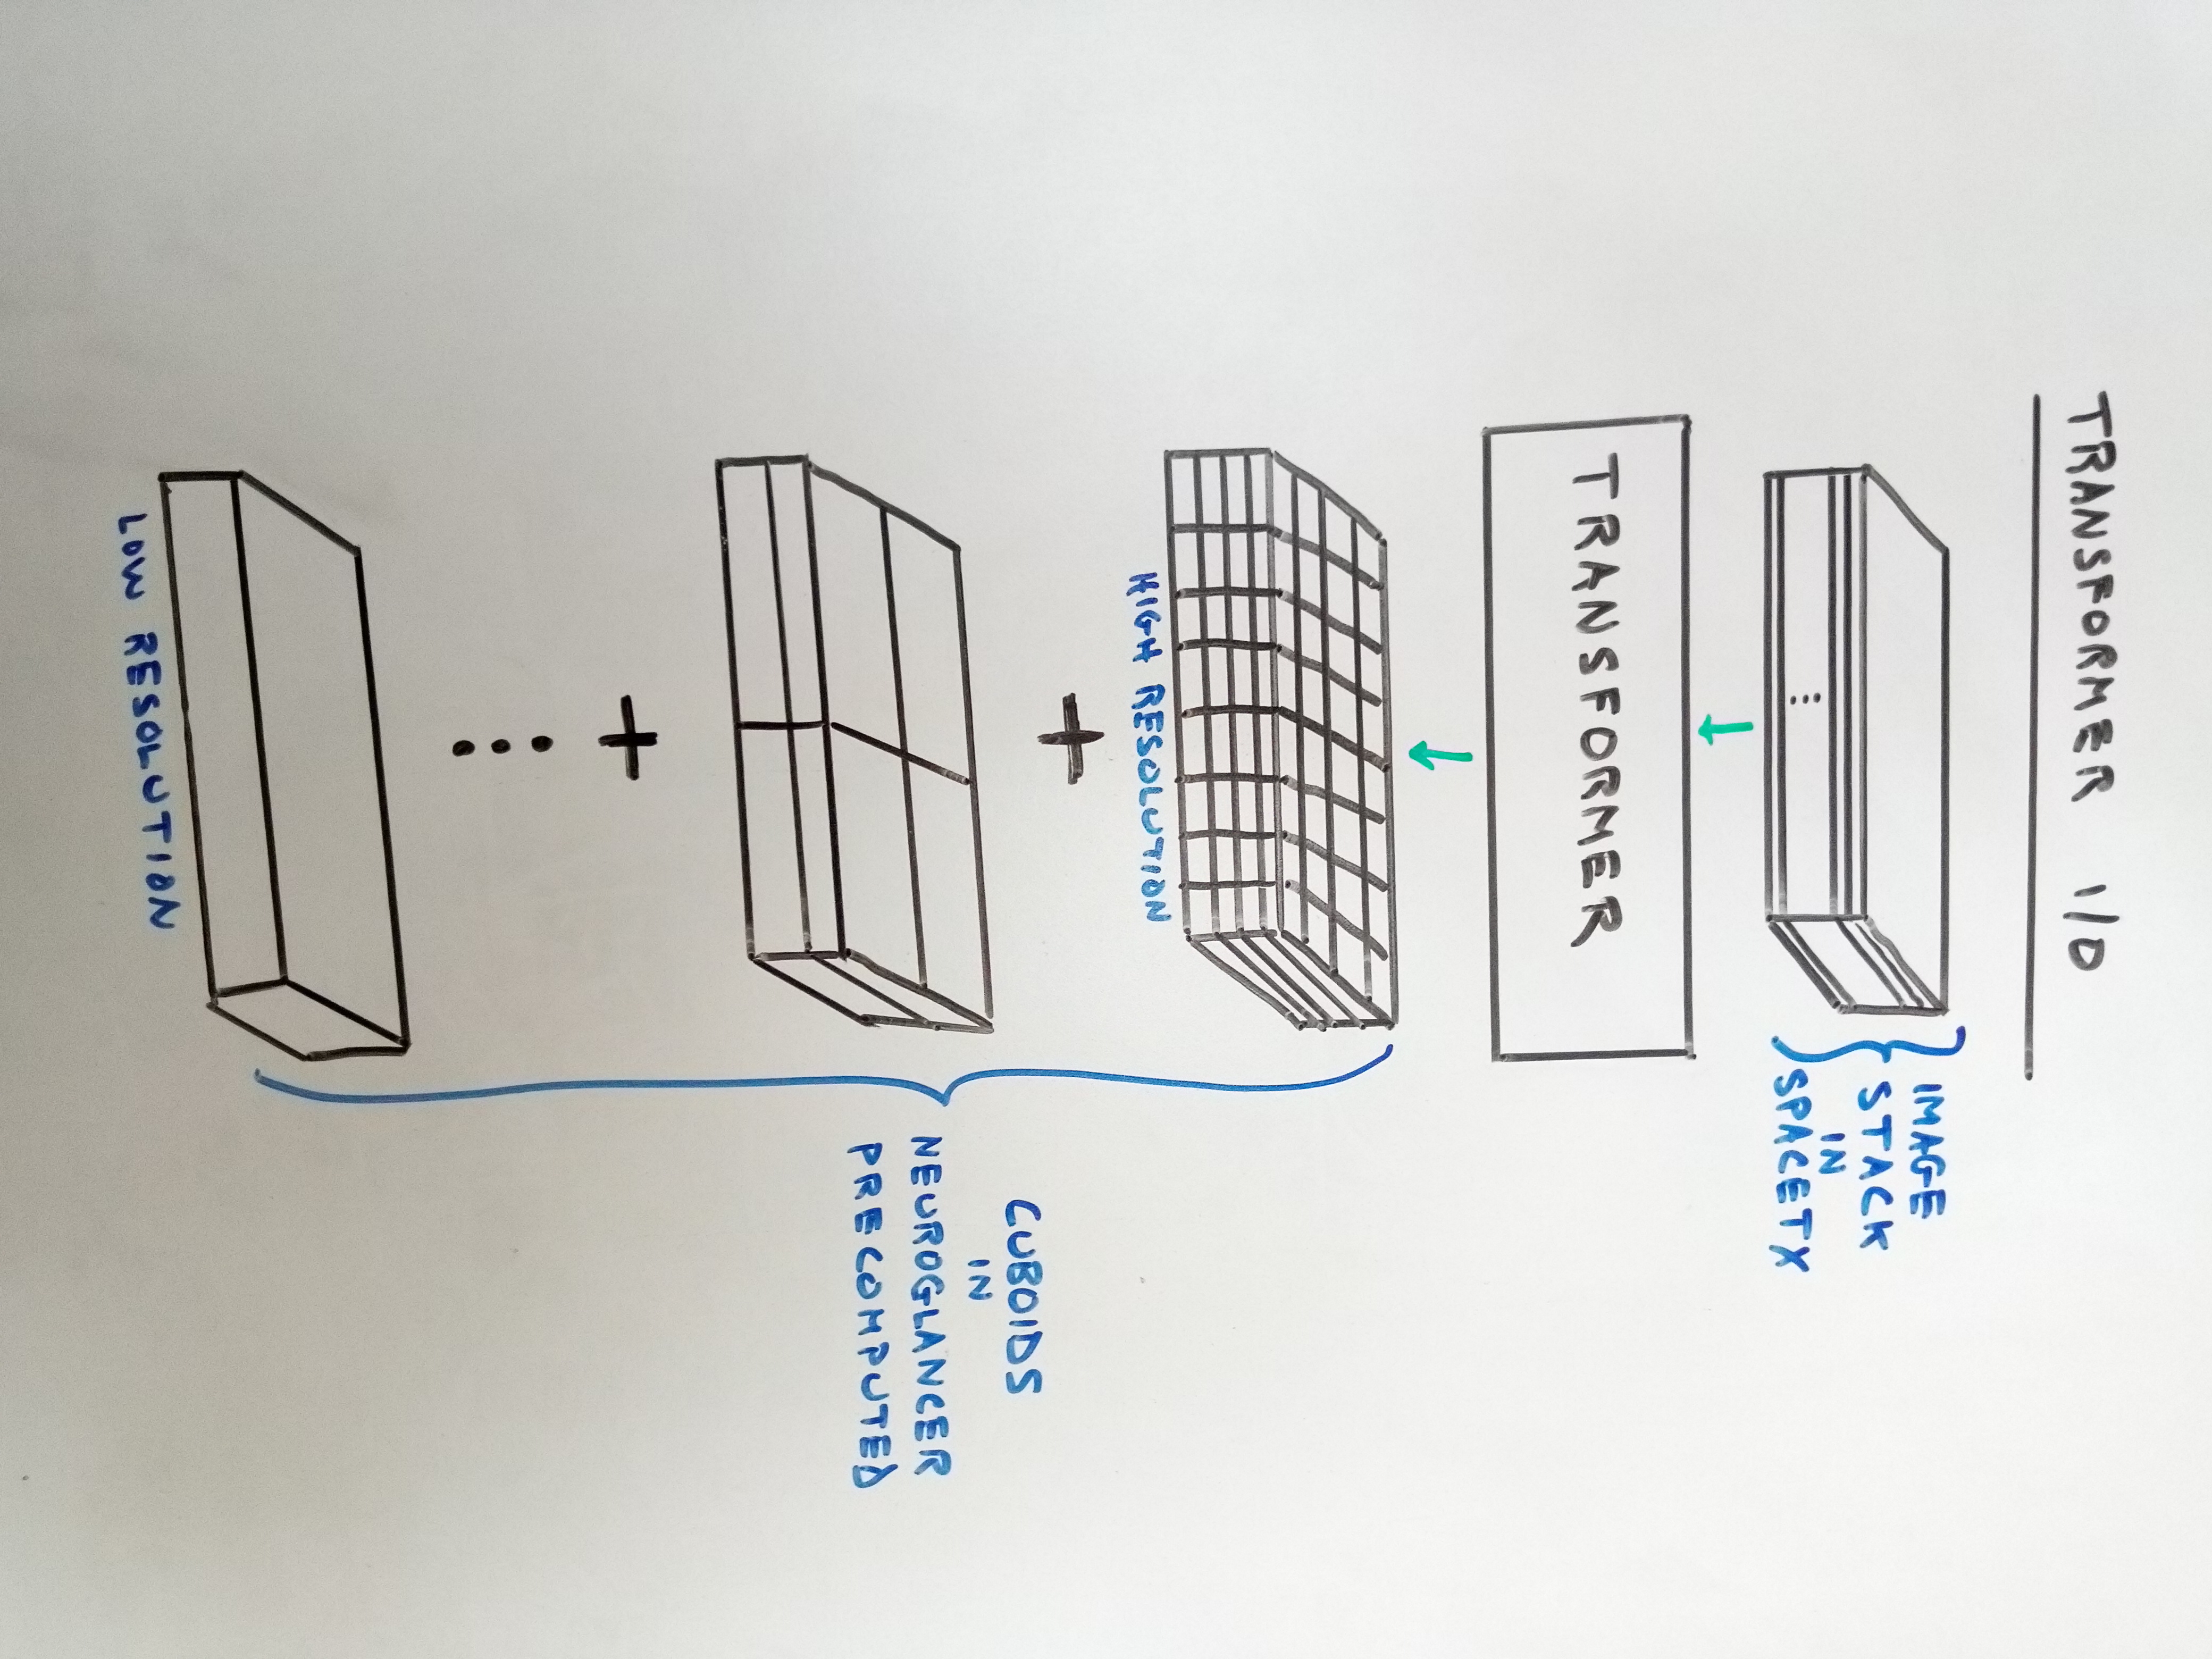 TRANSFORMER I/O
IMAGE
STACK
IN
SPACETX
TRANSFORMER
HIGH RESOLUTION
+
CUBOIDS
IN
NEUROGLANCER
PRECOMPUTED
+
LOW RESOLUTION